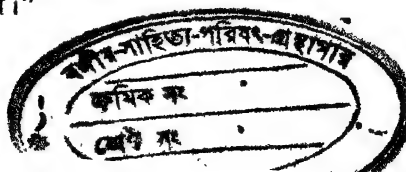 বঙ্গীয়-সাহিত্য-পরিষৎ-গ্রন্থাগার
ক্রমিক নং
শ্রেণী নং